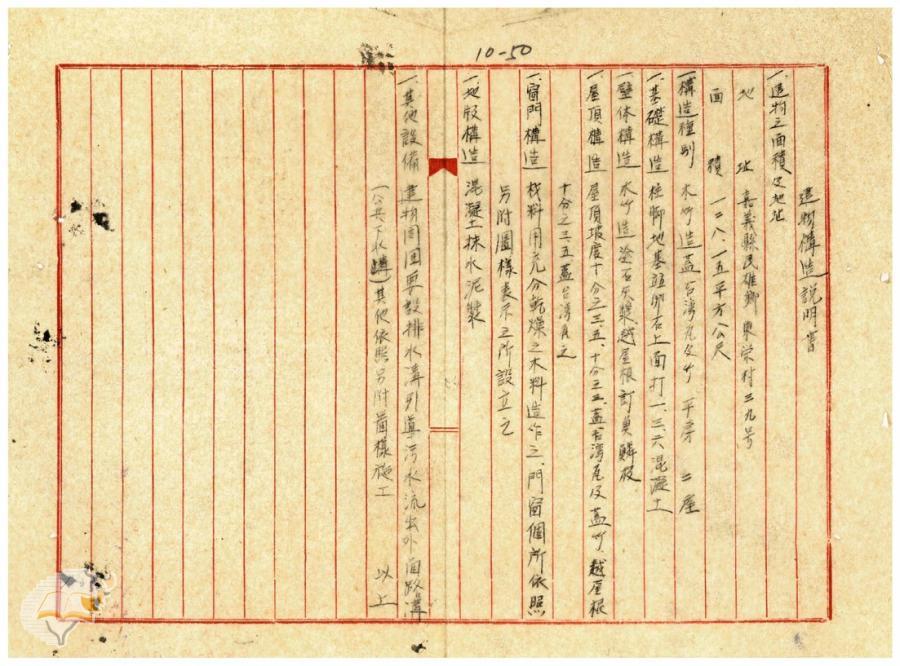 10-50
建物構造説明書
一、建物之面積及地址
地 址 嘉義縣民雄鄉東榮村三九号
面 積 一二八.一五平方公尺
一、構造種別 木竹造蓋台湾瓦及竹、平家 二屋
一、基礎構造 柱脚地基頭卵石上面打一、三、六混凝土
一、壁体構造 木竹造塗石灰漿越屋根訂魚鱗板
一、屋頂構造 屋頂坡度十分之三、五、十分之三、蓋台湾瓦及蓋竹、越屋根
十分之三、五蓋台湾瓦之
一、窗門構造 材料用充分乾燥之木料造作之、門窗個所依照
另附圖樣表示之所設立之
一、地版構造 混凝土抹水泥漿
一、其他設備 建物周囲要設排水溝引導污水流出外面路溝
(公共下水溝)其他依照另附圖樣施工
以上